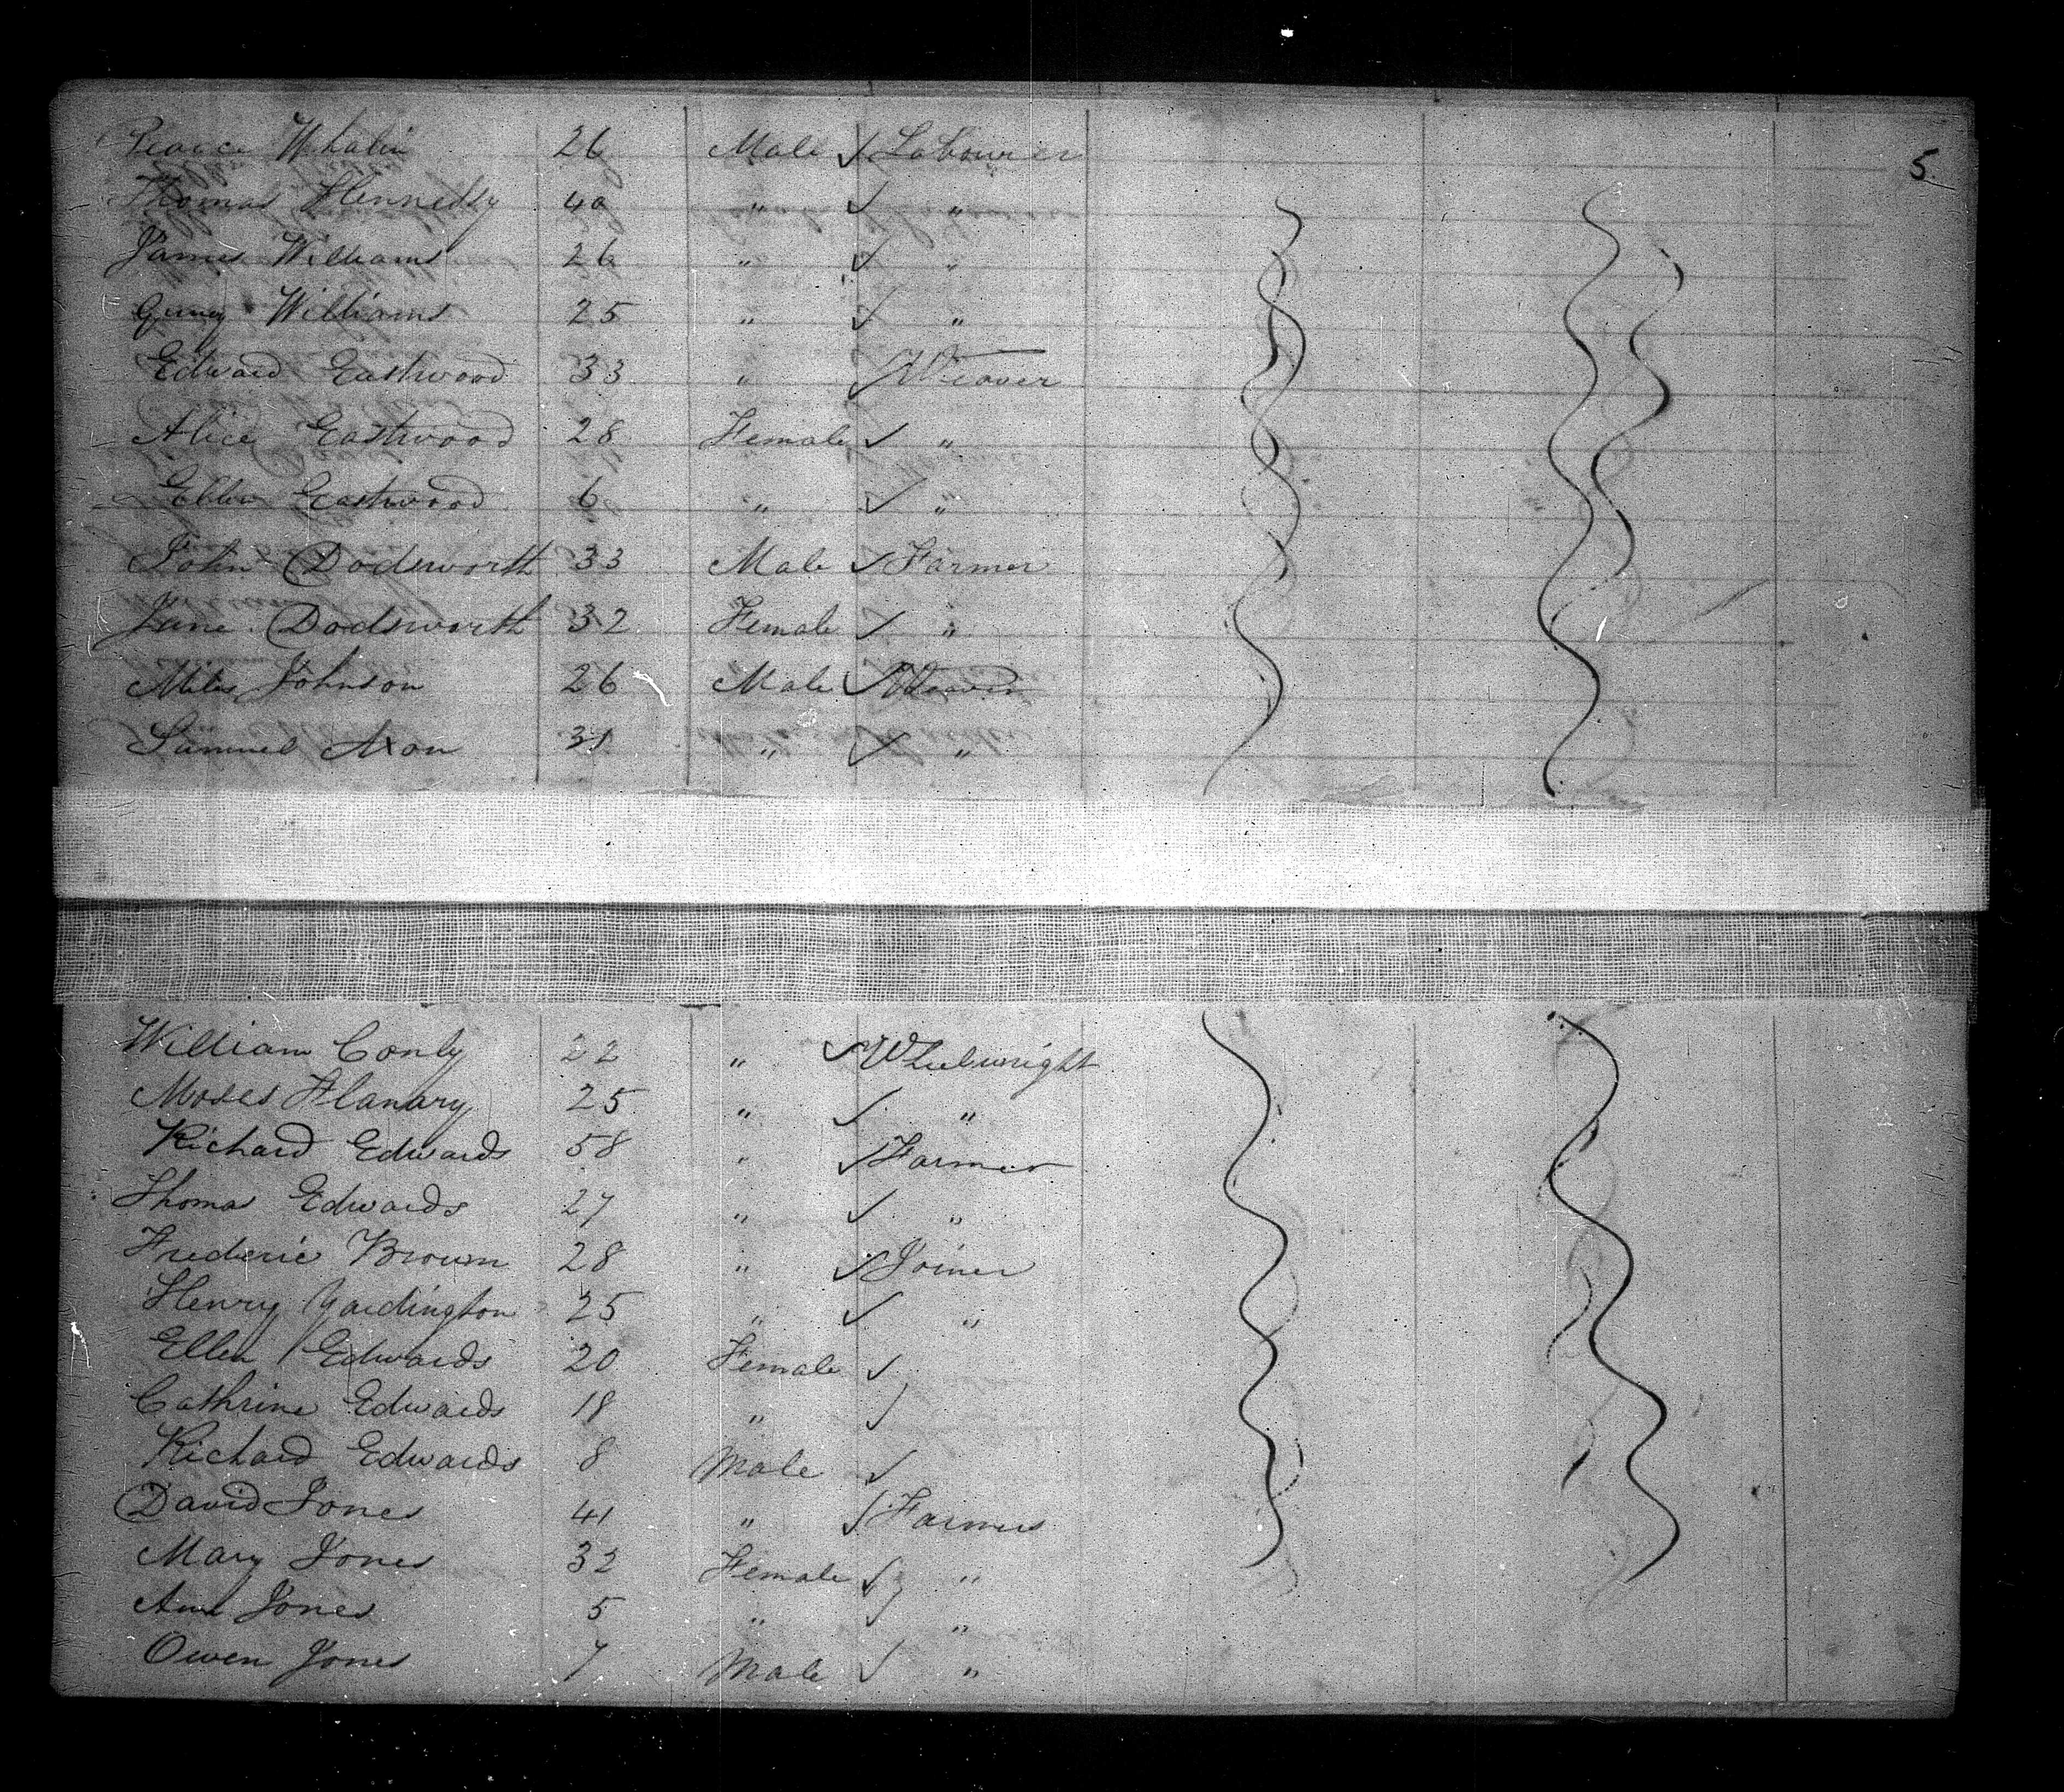 Pearce Whalin 26 Male ✓ Labourer
5
Thomas Hennessy 40 " ✓ "
James Williams 26 " ✓ "
Williams 25 " ✓ "
Edward Eastwood 33 " ✓ Weaver
Alice Eastwood 28 Female ✓ "
Ellen Eastwood 6 " ✓ "
John Dodsworth 33 Male ✓ Farmer
Jane Dodsworth 32 Female ✓ "
Miles Johnson 26 Male ✓ Weaver
Samuel Axon 31 " ✓ "
William Conly 22 " ✓ Wheelwright
Moses Flanary 25 " ✓ "
Richard Edwards 58 " ✓ Farmer
Thomas Edwards 27 " ✓ "
Frederic Brown 28 " ✓ Joiner
Henry Yardington 25 " ✓ "
Ellen Edwards 20 Female ✓
Cathrine Edwards 18 " ✓
Richard Edwards 8 Male ✓
David Jones 41 " ✓ Farmer
Mary Jones 32 Female ✓ "
Ann Jones 5 " "
Owen Jones 7 Male ✓ "